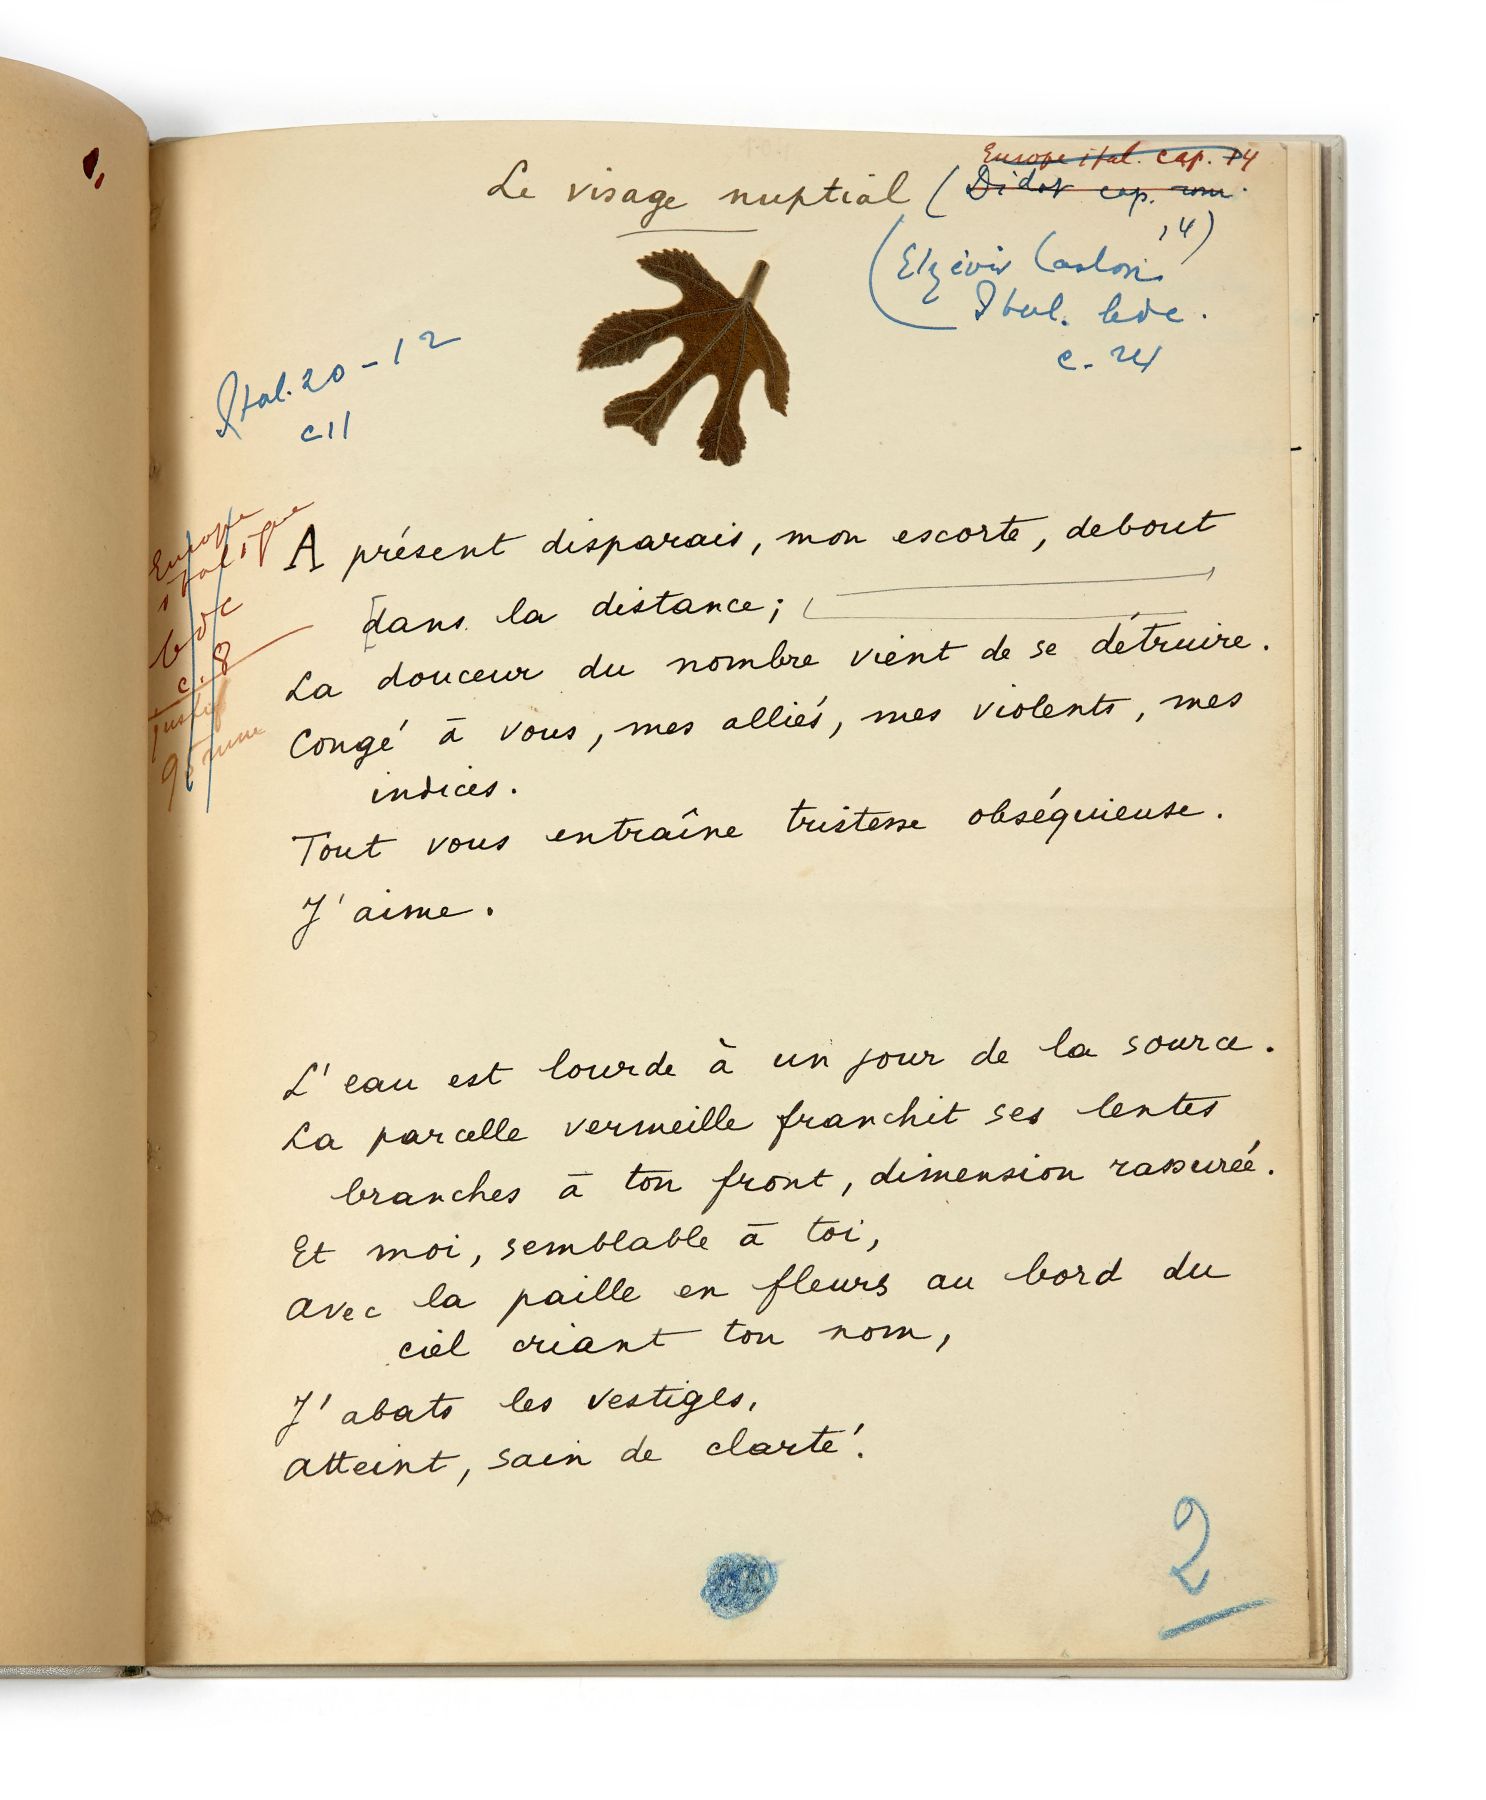 Europe ital. cap. 14
Le visage nuptial (Didot cap. rom.
14)
(Elzévir Caslon
Ital. bdc.
c. 24
Ital. 20-12
c11
Europe
italique
bdc
c. 8
justif
95 mm
A présent disparais, mon escorte, debout
[dans la distance;
La douceur du nombre vient de se détruire.
Congé à vous, mes alliés, mes violents, mes
indices.
Tout vous entraîne tristesse obséquieuse.
J'aime.
L'eau est lourde à un jour de la source.
La parcelle vermeille franchit ses lentes
branches à ton front, dimension rassurée.
Et moi, semblable à toi,
avec la paille en fleurs au bord du
ciel criant ton nom,
J'abats les vestiges,
atteint, sain de clarté.
2